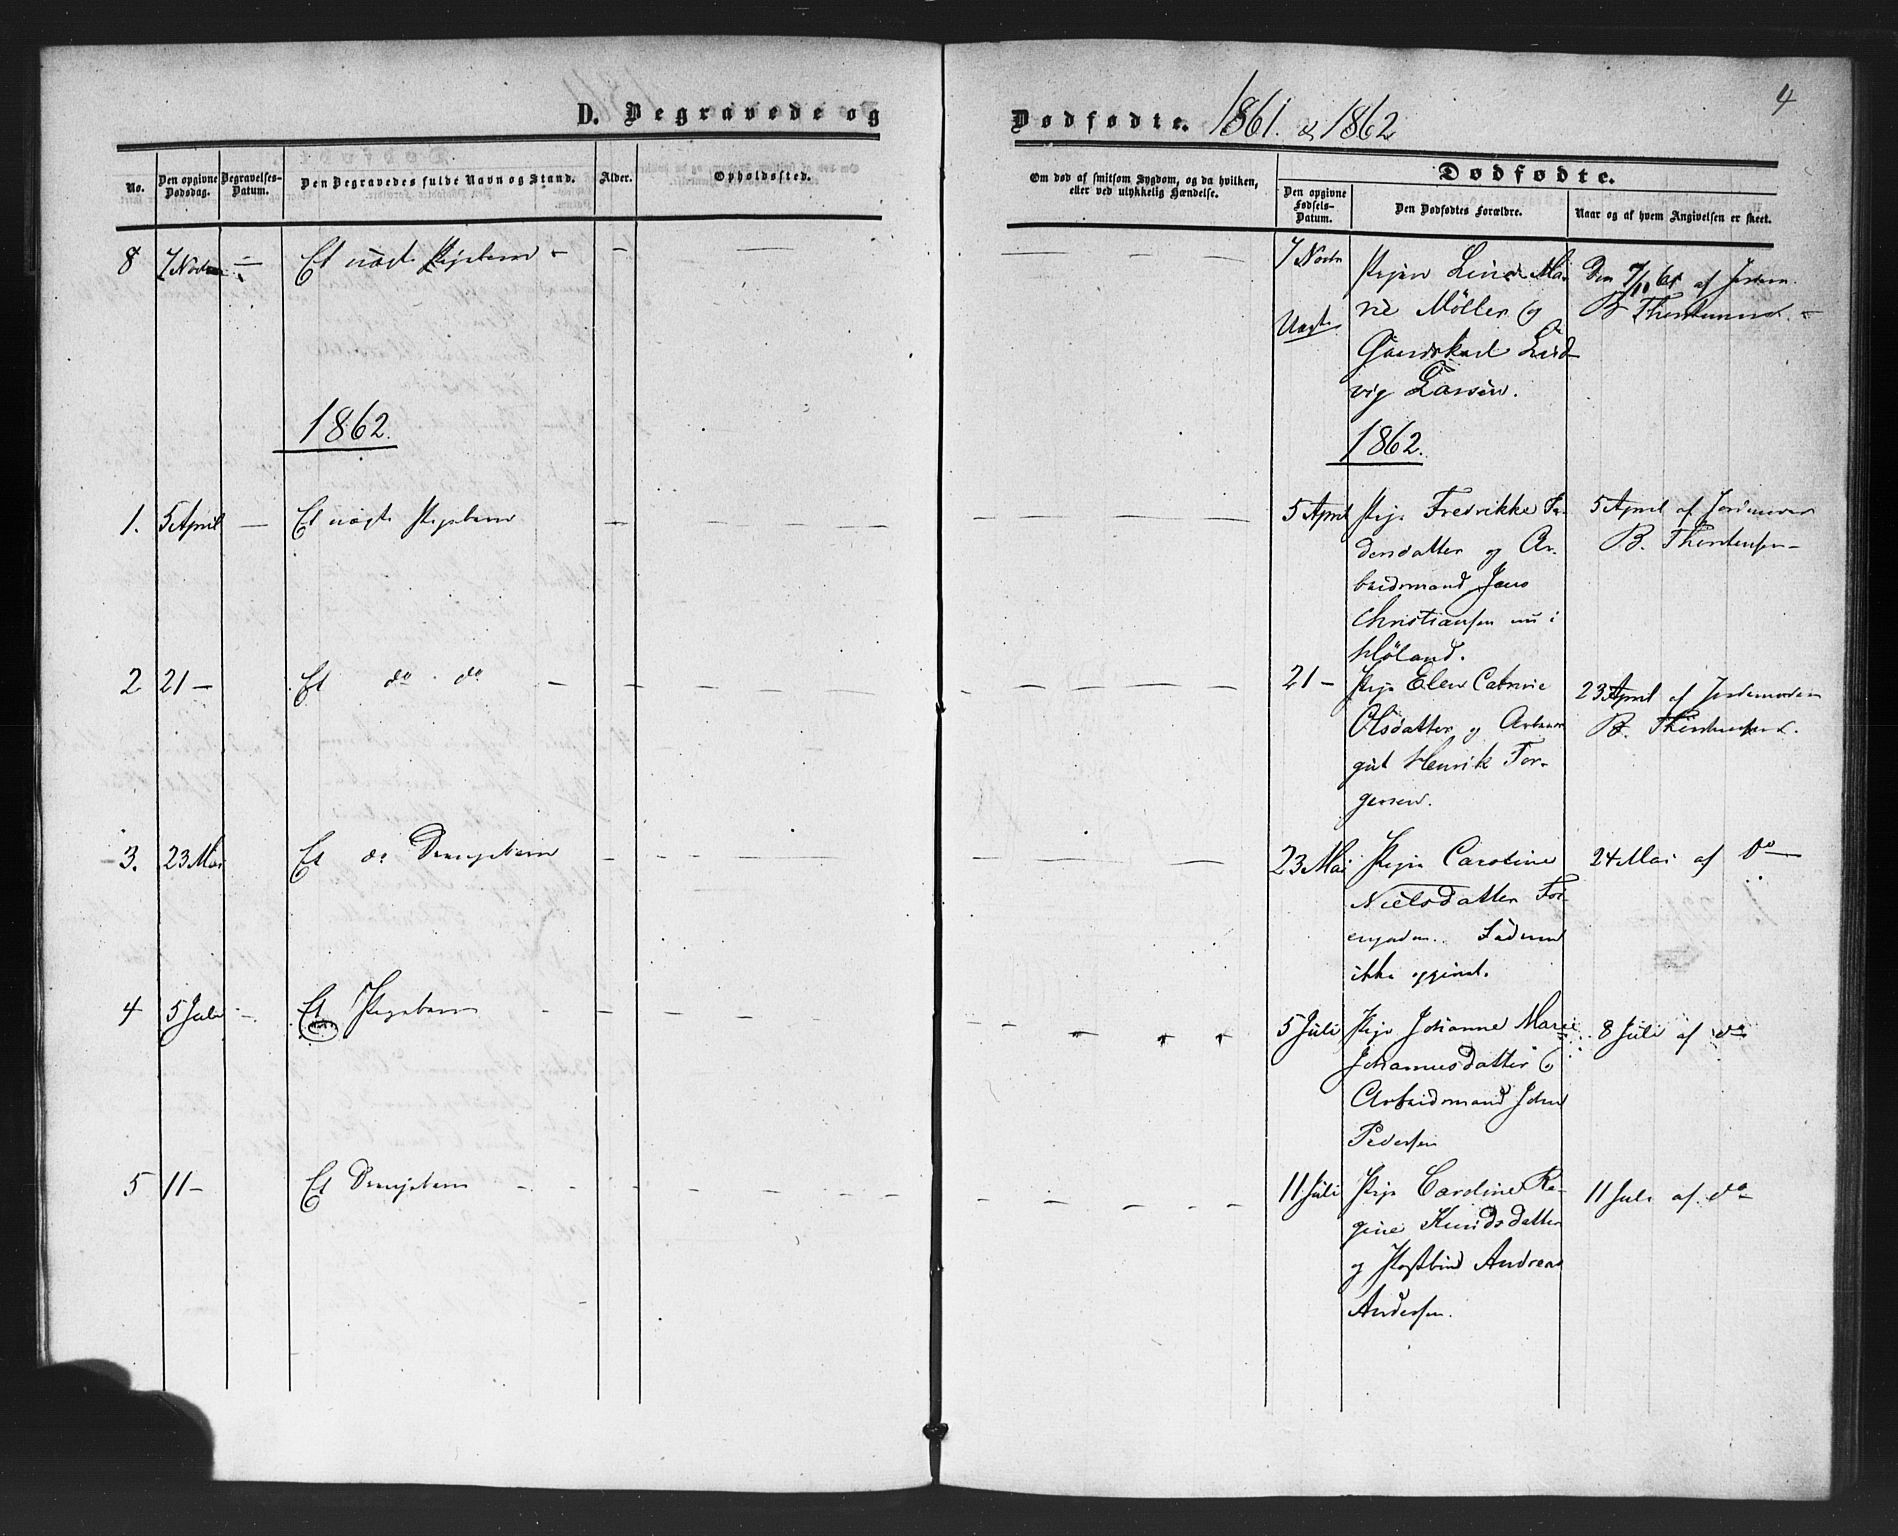 D. Begravede og
Dødfødte. 1861. & 1862
4
No.
Den opgivne Dødsdag.
Begravelses-Datum.
Den Begravedes fulde Navn og Stand.
Alder.
Opholdssted.
Om død af smitsom Sygdom, og da hvilken, eller ved ulykkelig Hændelse.
Dødfødte.
Den opgivne Fødsels-Datum.
Den Dødfødtes Forældre.
Naar og af hvem Angivelsen er skeet.
8 7 Novbr — Et uægte Pigebarn — —
7 Novbr
Uægte
Pigen Line Ma-
rie Möller og
Gaardskarl Lud-
vig Larsen.
Den 7/11 61 af Jordem.
B. Thorstensen. —
1862.
1862.
1. 5 April — Et uægte Pigebarn
5 April Pige Fredrikke
densdatter og Ar-
beidsmand Jens
Christiansen nu i
Höland.
5 April af Jordemoder
B. Thorstensen —
2 21 — Et do do
21 — Pige Elen Catrine
Olsdatter og
gut Henrik Tor-
gersen.
23 April af Jordemoderen
B. Thorstensen.
3. 23 Mai Et do Drengebarn
23 Mai Pige Caroline
Nielsdatter
Faderen
ikke opgivet.
24 Mai af do
4 5 Juli — Et Pigebarn
5 Juli Pige Johanne Marie
Johannesdatter og
Arbeidsmand Johan
Pedersen
8 Juli af do
5 11 — Et Drengebarn
11 Juli Pige Caroline Ra-
gine Knudsdatter
og Andreas
Andersen.
11 Juli af do